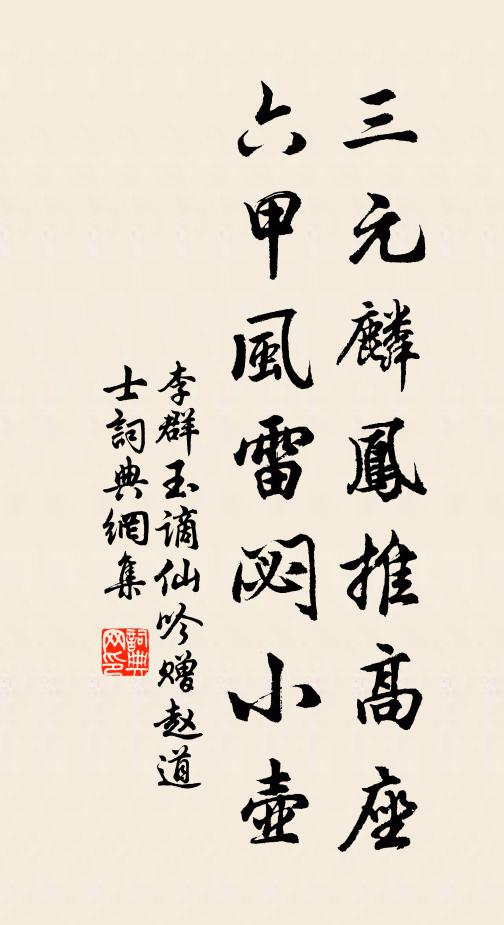 三元麟鳳推高座
六甲風雷閟小壺
李群玉谪仙吟赠赵道
士詞典網集
詞典网印